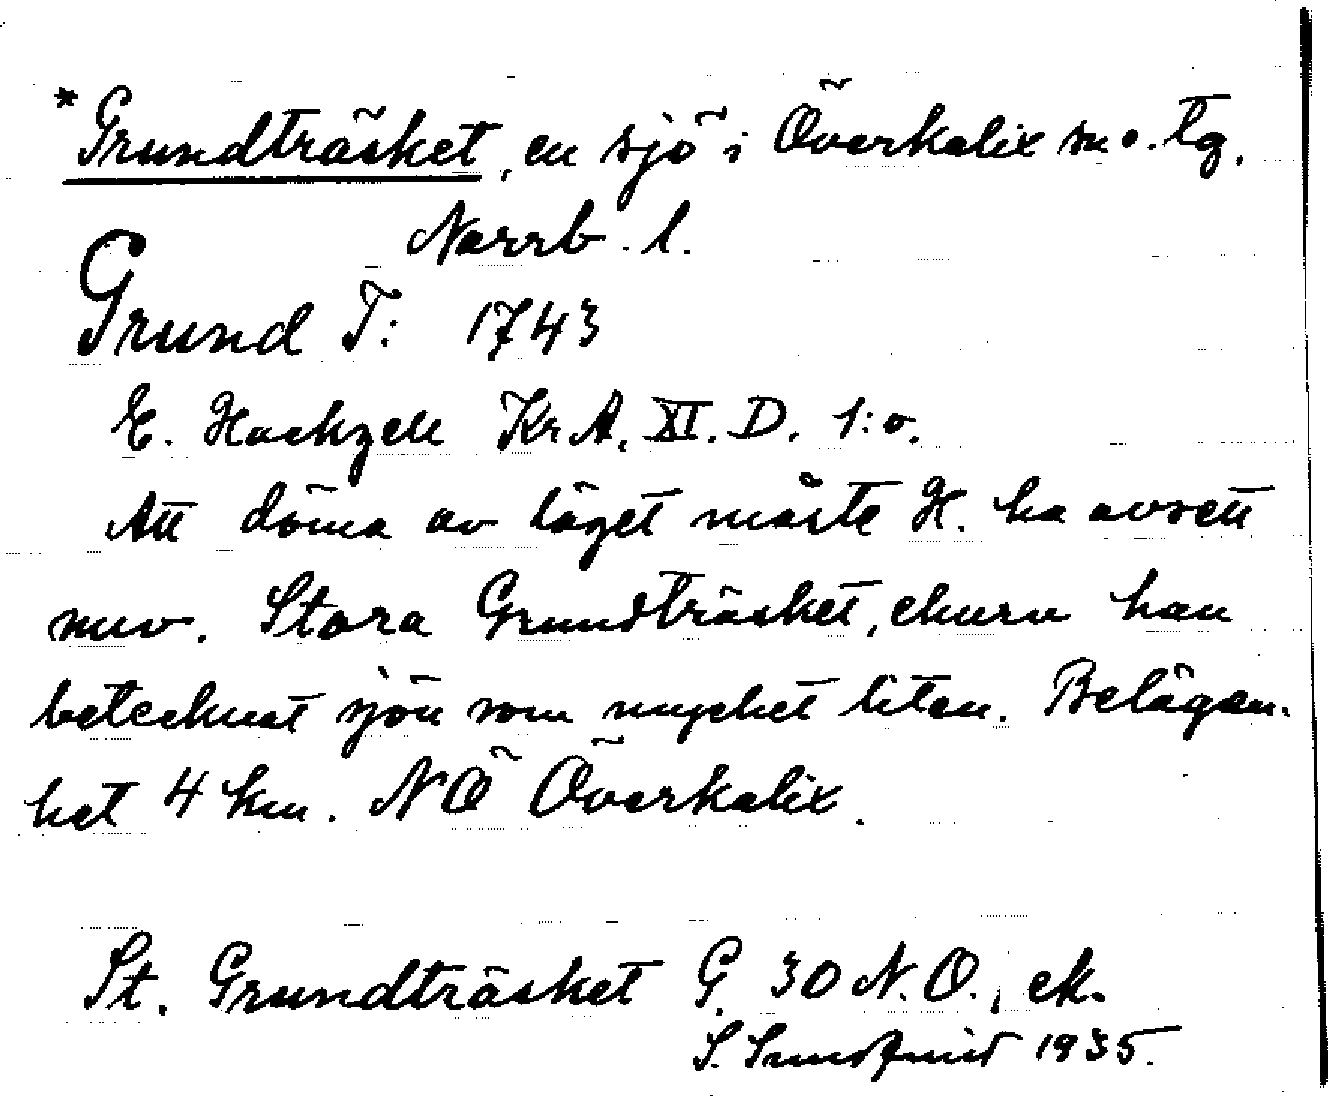 *Grundträsket, en sjö i Överkalix sn o. tg.
Norrb. l.
Grund T: 1743
E. Hackzell Kr A. XI. D. 1:o.
Att döma av läget måste H. ha avsett
nuv. Stora Grundträsket, ehuru han
betecknat sjön som mycket liten. Belägen-
het 4 km. NÖ Överkalix.
St. Grundträsket G. 30 N.O., ek.
S. Sundqvist 1935.